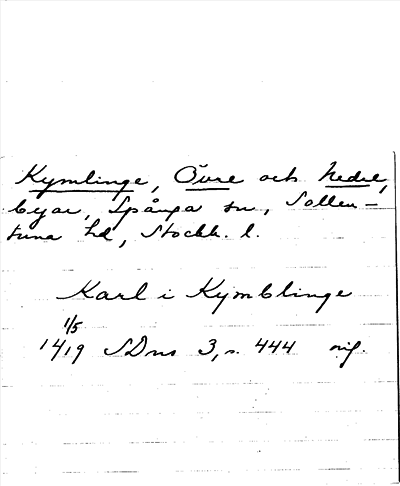 Kymlinge, Övre och Nedre,
byar, Spånga sn, Sollen-
tuna hd, Stockh. l.
Karl i Kymblinge
1/5
1419 SDns 3, s. 444 orig.